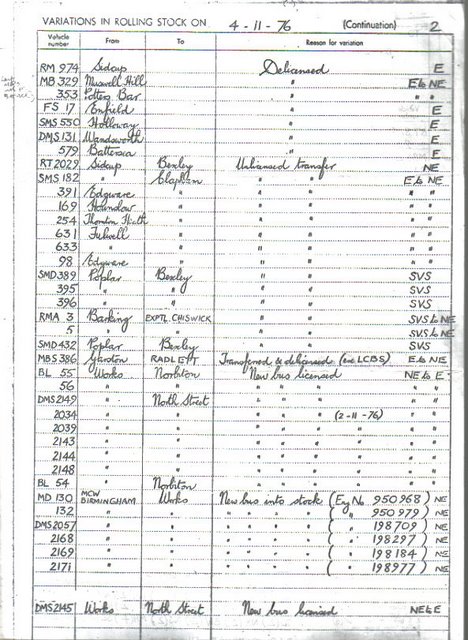 VARIATIONS IN ROLLING STOCK ON 4-11-76 (Continuation) 2
Vehicle number From To Reason for variation
RM 974 Sidcup Delicensed E
MB 329 Muswell Hill " E to NE
353 Potters Bar " " "
FS 17 Enfield " E
SMS 550 Holloway " E
DMS 131 Wandsworth " E
579 Battersea " E
RT 2029 Sidcup Bexley Unlicensed transfer NE
SMS 182 " Clapham " " E to NE
391 Edgware " " " " "
169 Hounslow " " " " "
254 Thornton Heath " " " " "
631 Fulwell " " " " "
633 " " " " " "
98 Edgware " " " " "
SMD 389 Poplar Bexley " " SVS
395 " " " " SVS
396 " " " " SVS
RMA 3 Barking EXPTL. CHISWICK " " SVS to NE
5 " " " " SVS to NE
SMD 432 Poplar Bexley " " SVS
MBS 386 Garston RADLETT Transferred & delicensed (ex LCBS) E to NE
BL 55 Works Norbiton New bus licensed NE to E
56 " " " " " " "
DMS 2149 " North Street " " " " "
2034 " " " " " (2-11-76) " "
2039 " " " " " " "
2143 " " " " " " "
2144 " " " " " " "
2148 " " " " " " "
BL 54 " Norbiton " " " " "
MD 130 MCW BIRMINGHAM Works New bus into stock (Eng No 950968) NE
132 " " " " " " ( " 950979) NE
DMS 2057 " " " " " " ( " 198709) NE
2168 " " " " " " ( " 198297) NE
2169 " " " " " " ( " 198184) NE
2171 " " " " " " ( " 198977) NE
DMS 2145 Works North Street New bus licensed NE to E